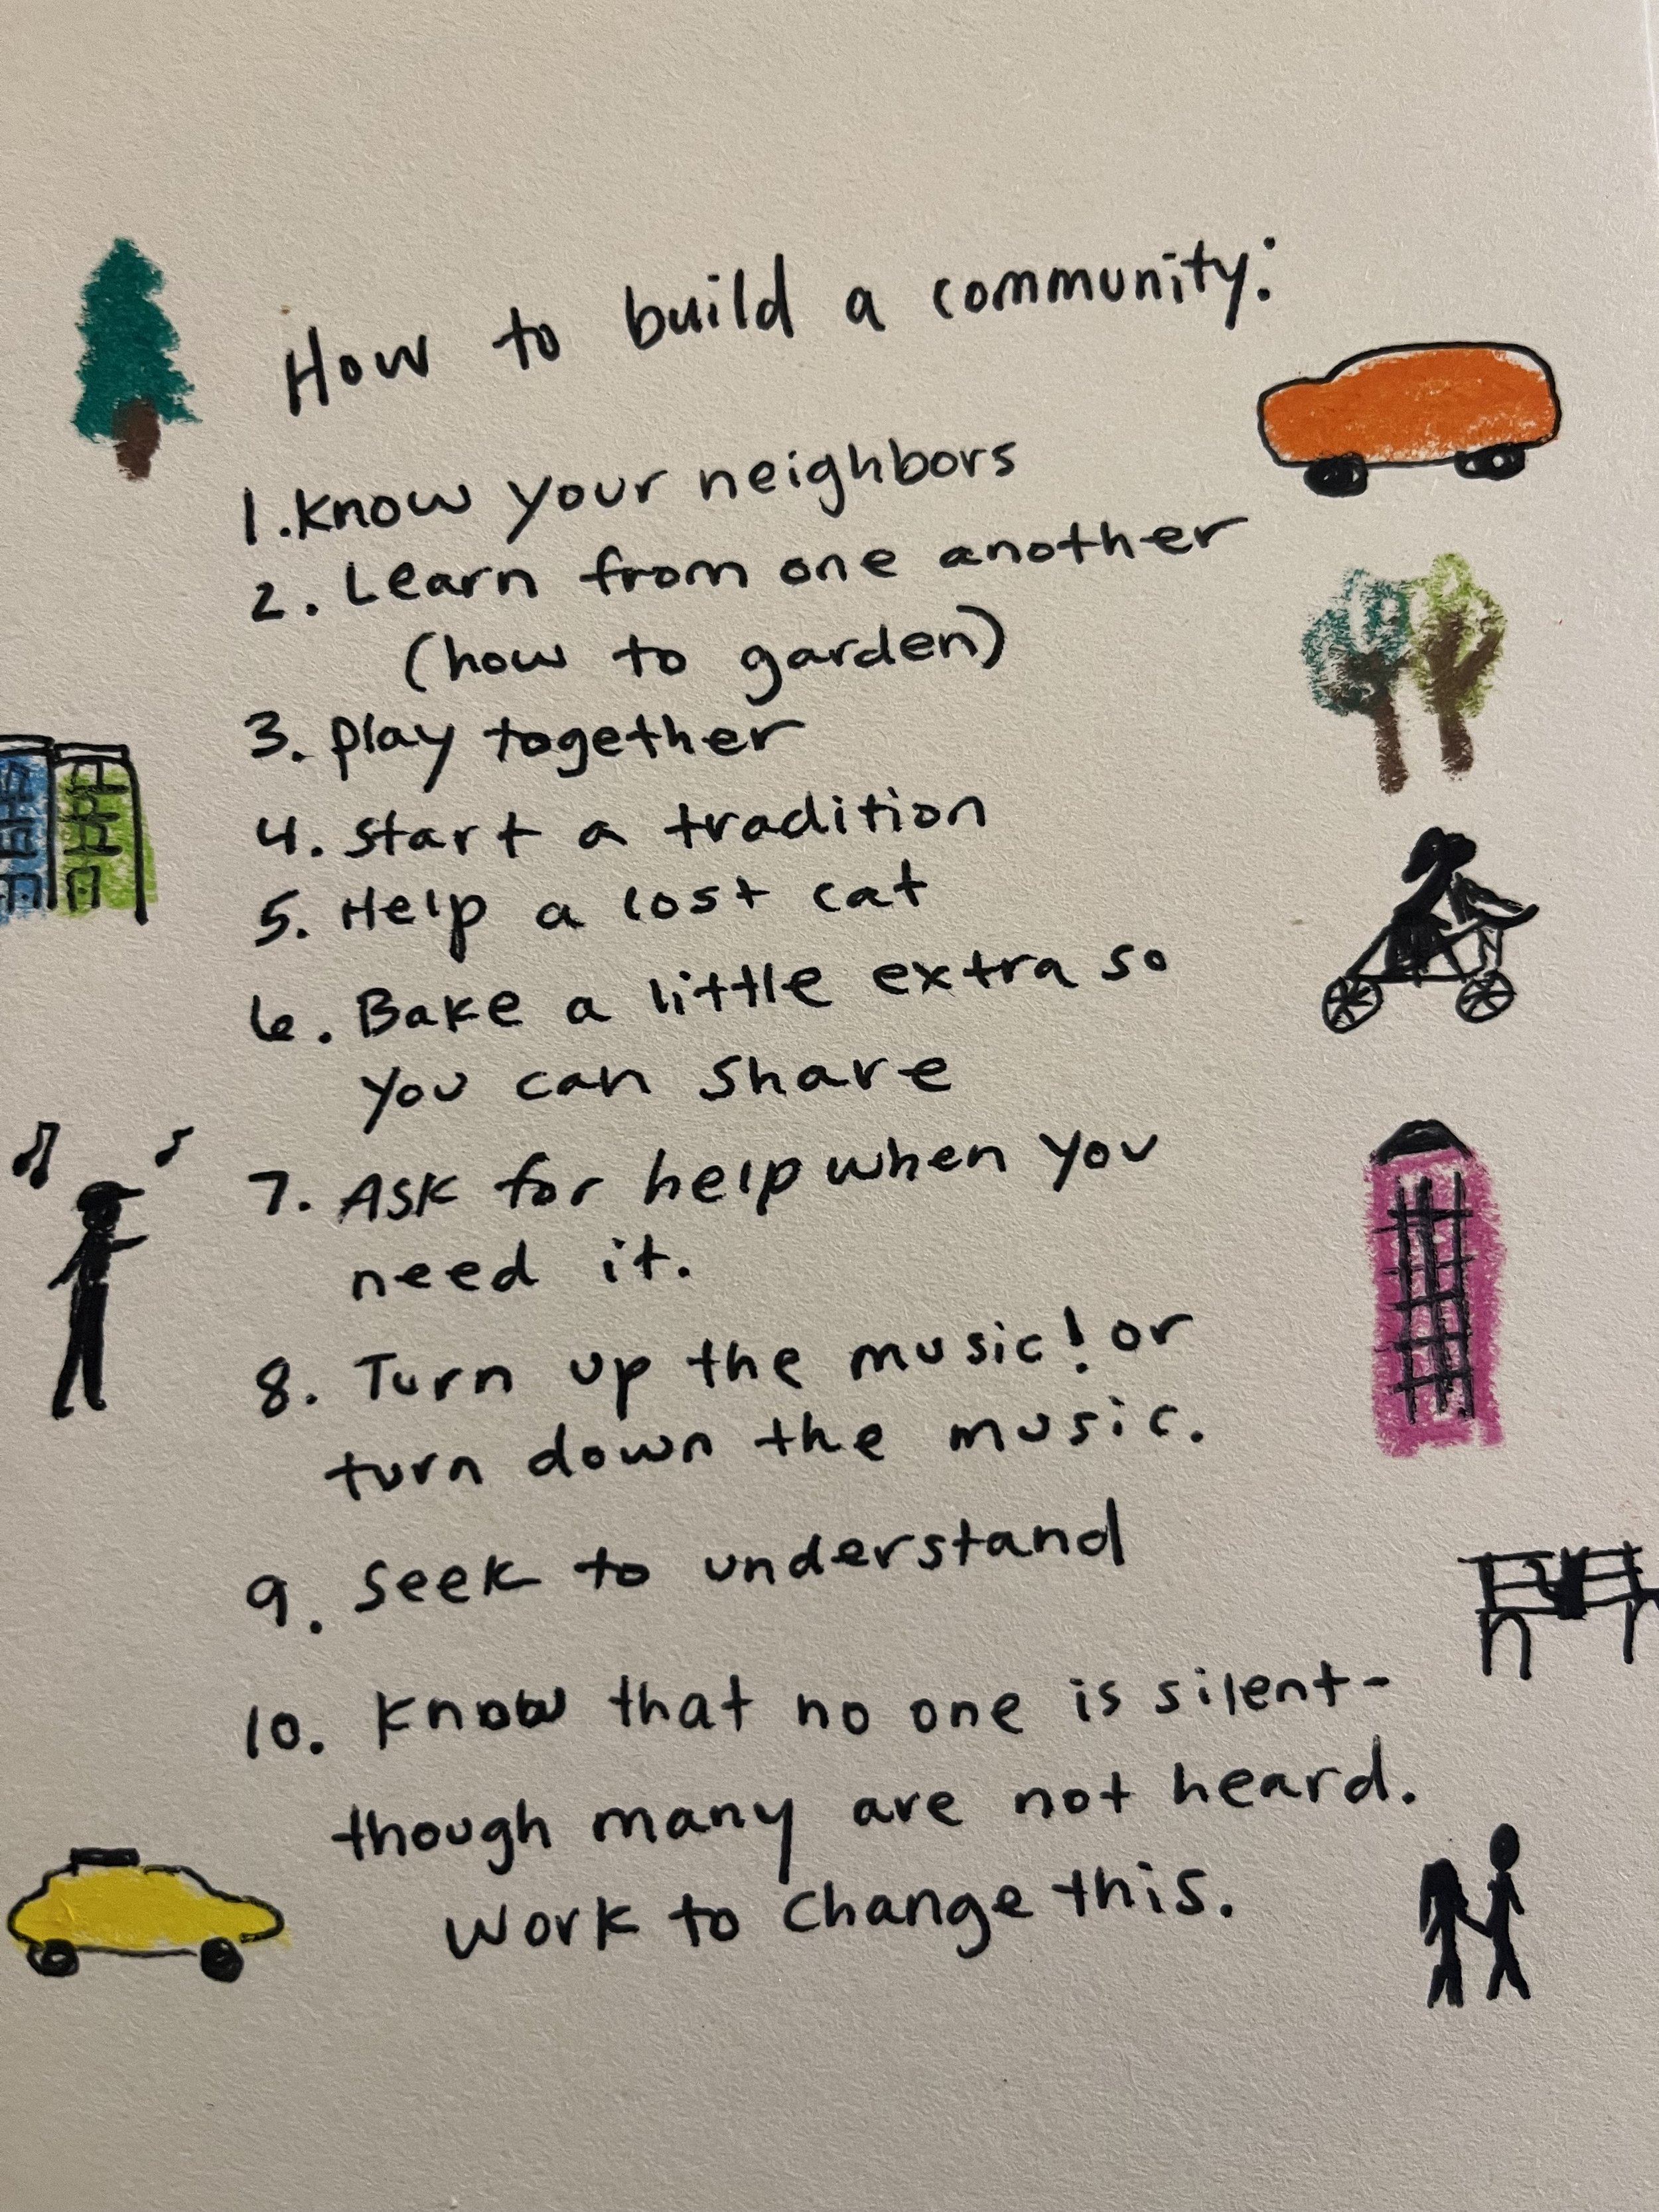 How to build a community:
1. Know your neighbors
2. Learn from one another
(how to garden)
3. Play together
4. Start a tradition
5. Help a lost cat
6. Bake a little extra so
you can share
7. Ask for help when you
need it.
8. Turn up the music! or
turn down the music.
9. Seek to understand
10. Know that no one is silent-
though many are not heard.
Work to change this.